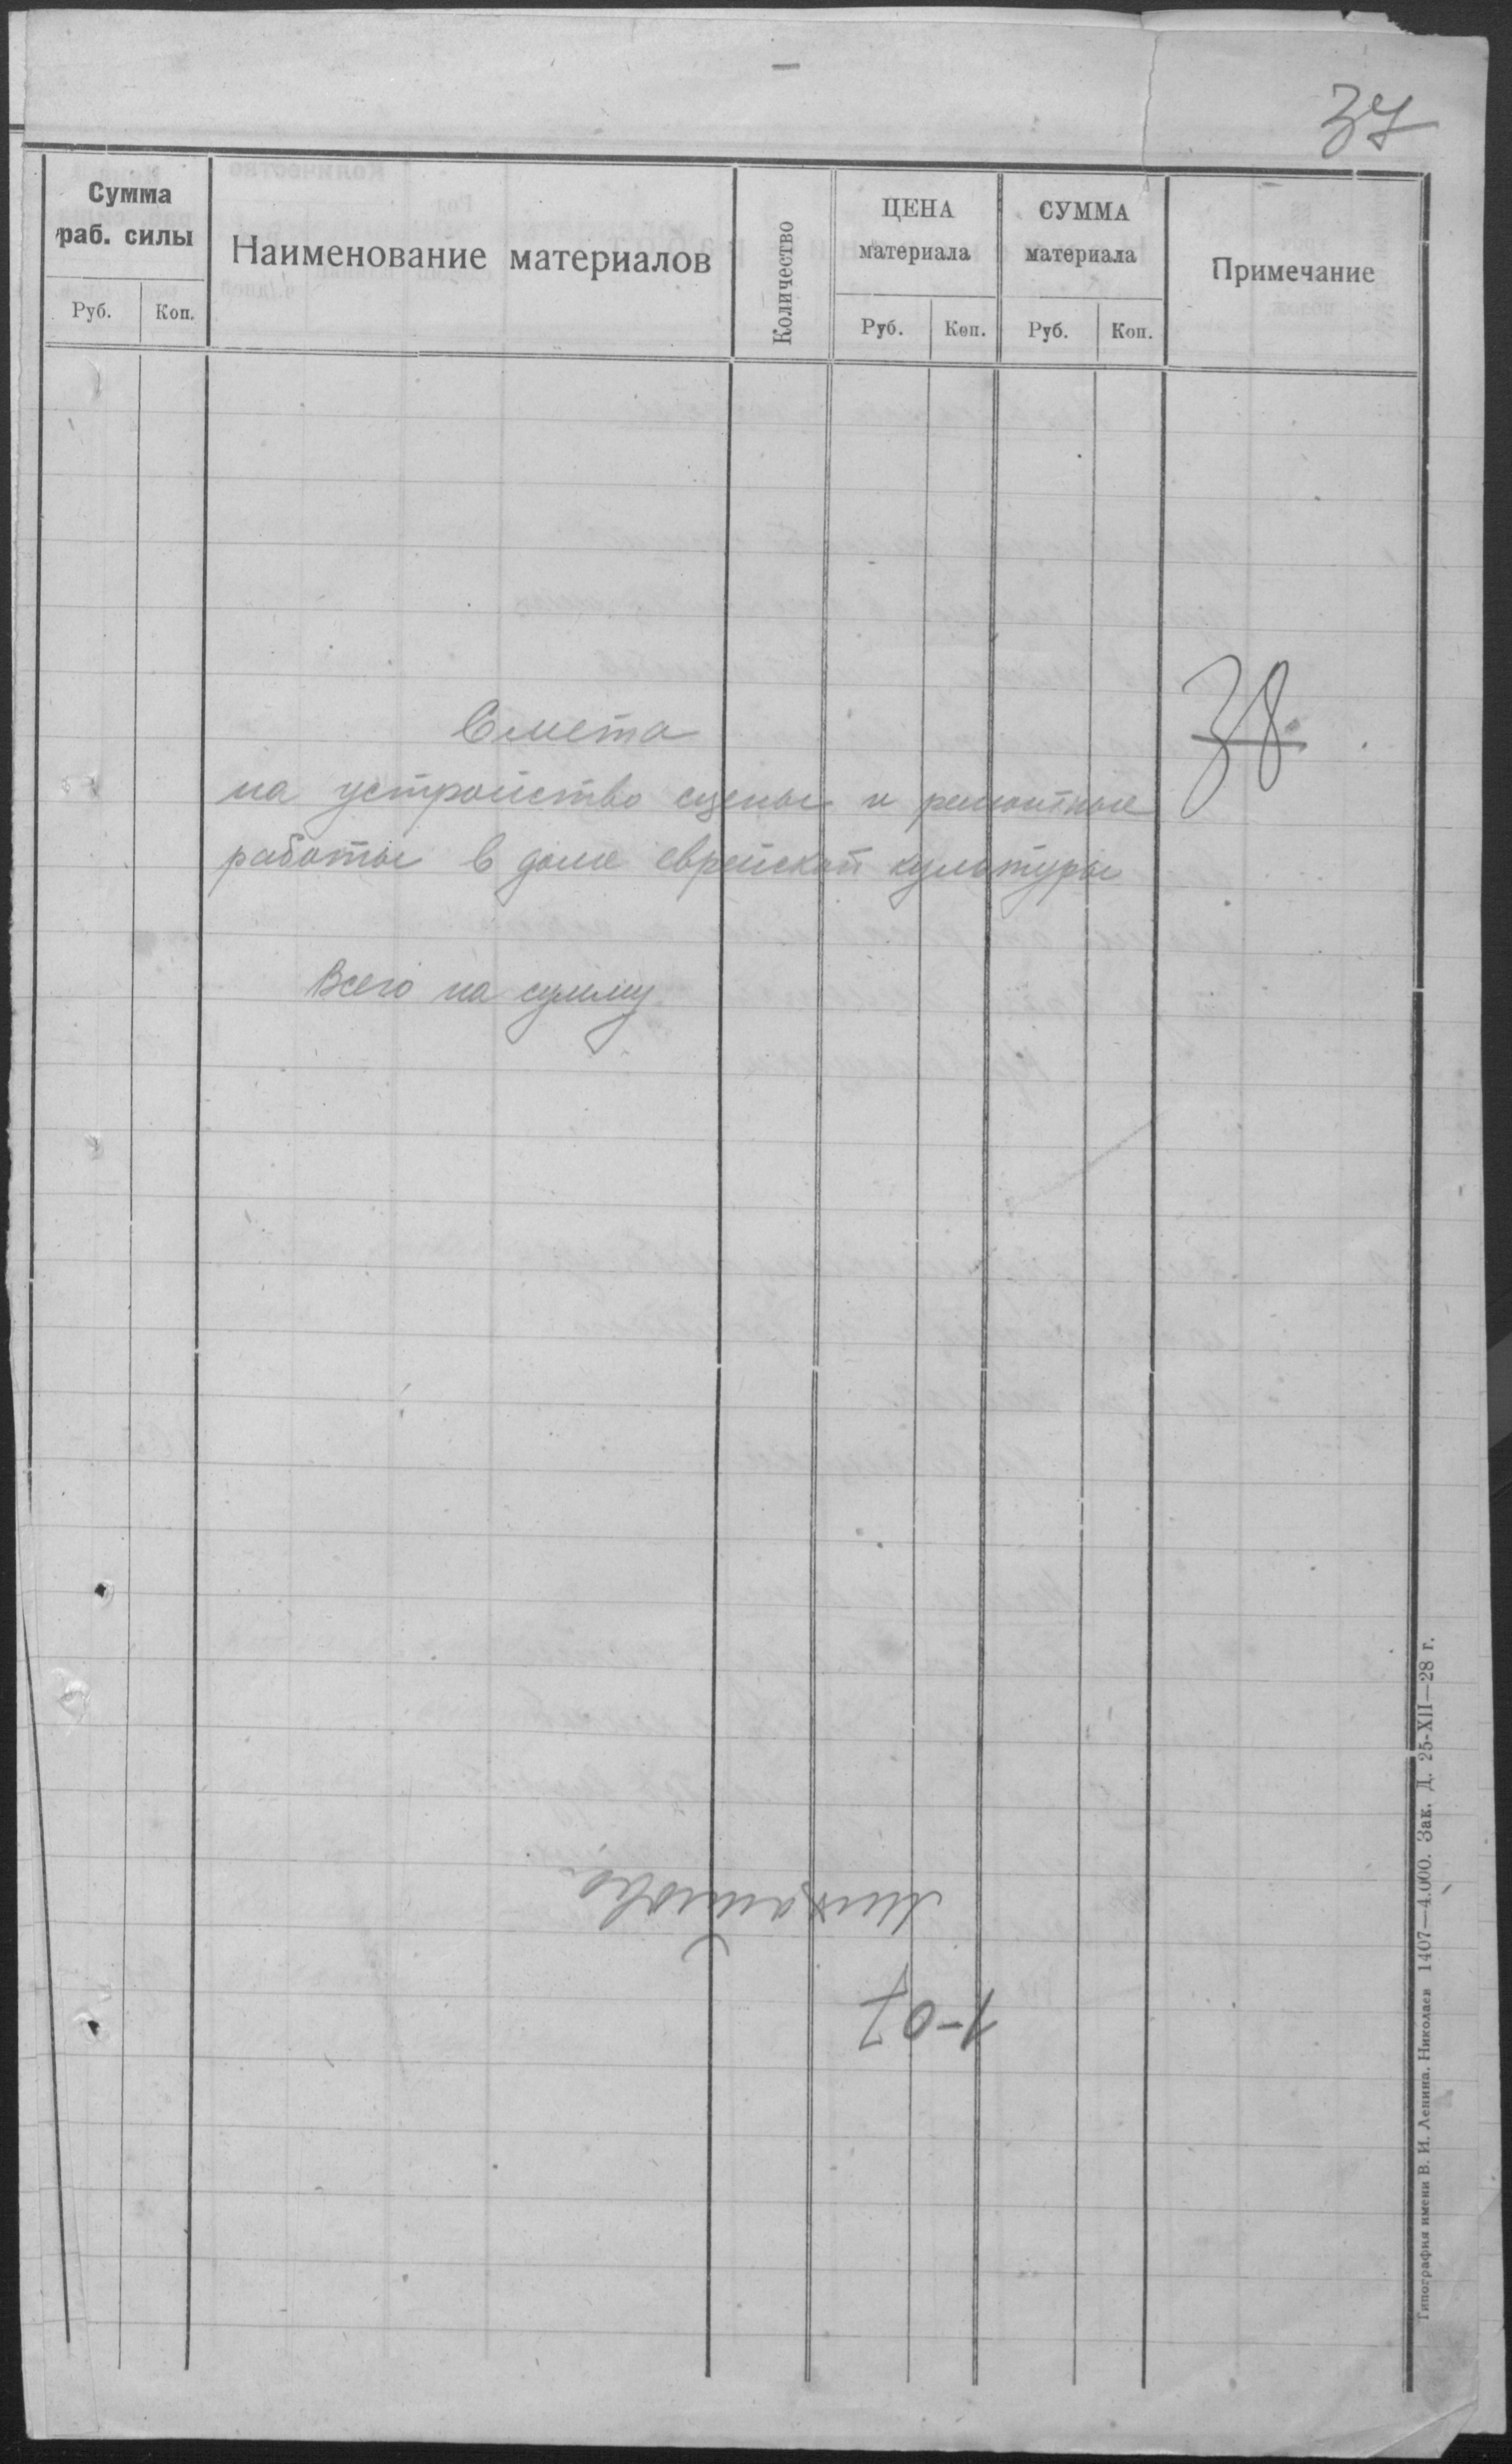 37
Сумма раб. силы
Руб. Коп.
Наименование материалов
Количество
ЦЕНА материала
Руб. Коп.
СУММА материала
Руб. Коп.
Примечание
38
Смета
на устройство сцены и ремонтные
работы в доме еврейской культуры
Всего на сумму
1-07
Типография имени В. И. Ленина. Николаев 1407—4.000. Зак. Д. 25-XII—28 г.